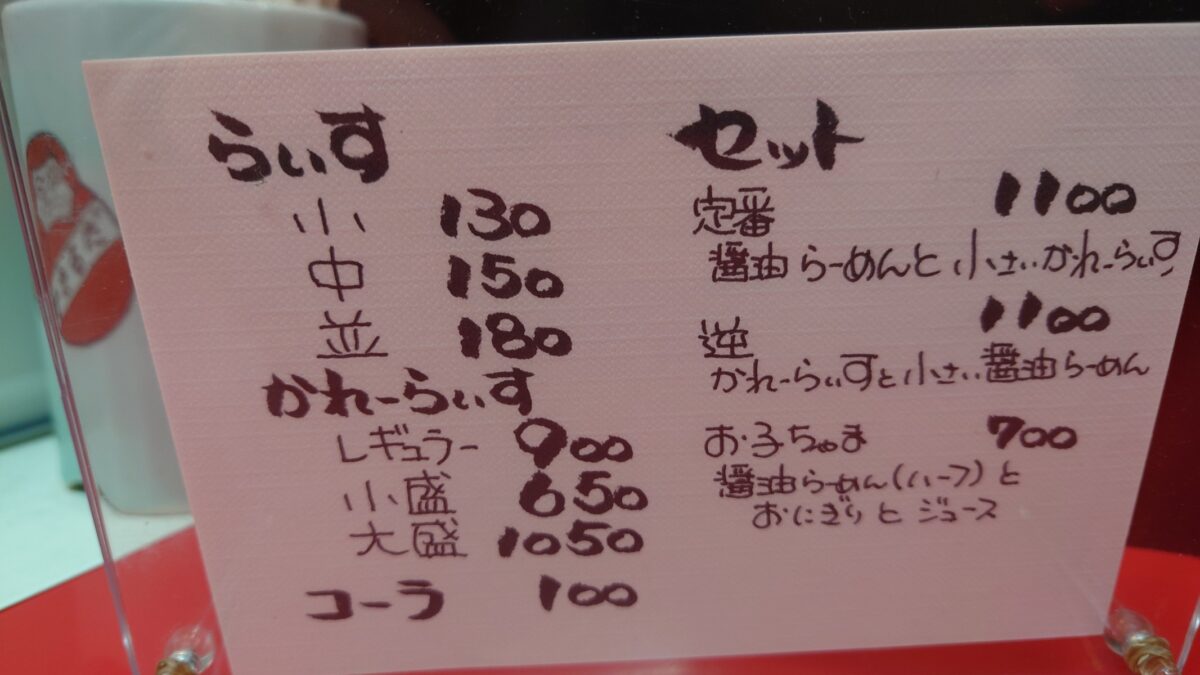 らぃす
小 130
中 150
並 180
かれーらぃす
レギュラー 900
小盛 650
大盛 1050
コーラ 100
セット
定番 1100
醤油らーめんと小さいかれーらぃす
逆 1100
かれーらぃすと小さい醤油らーめん
お子ちゅま 700
醤油らーめん(ハーフ)と
おにぎりとジュース